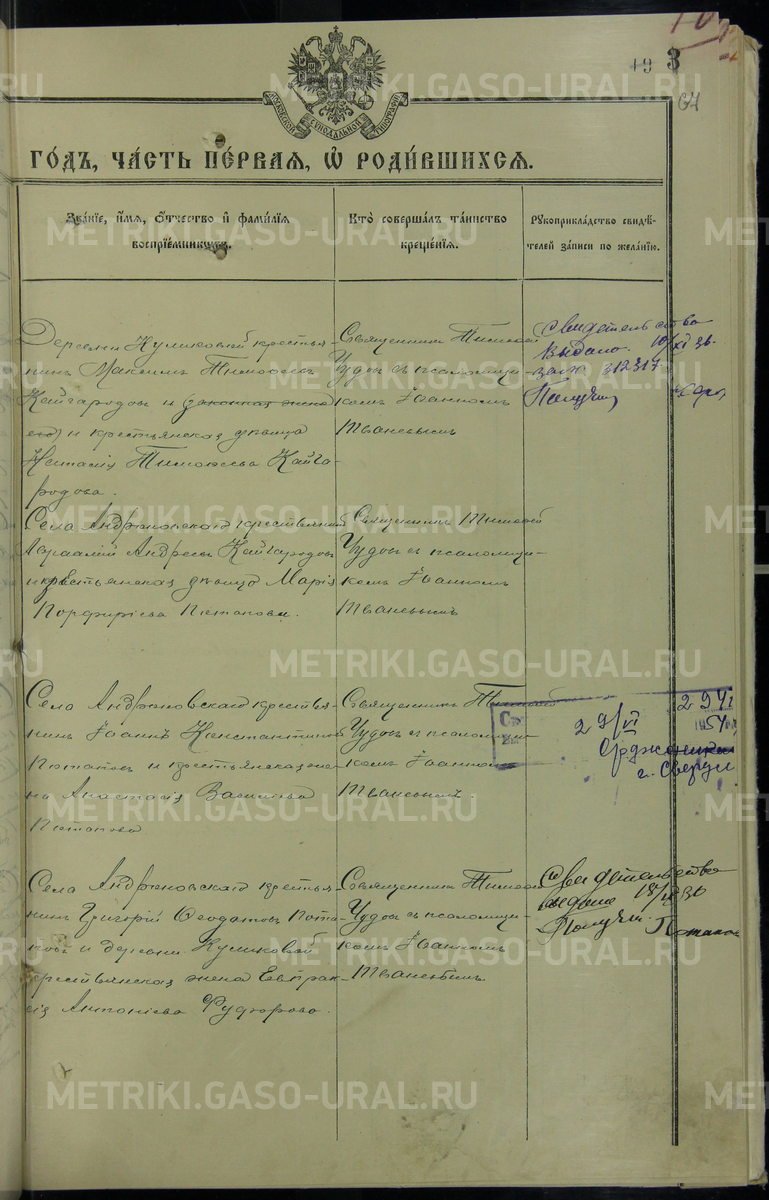 193
64
МОСКОВСКОЙ СѴНОДАЛЬНОЙ ТИПОГРАФІИ
ГОДЪ, ЧАСТЬ ПЕРВАЯ, Ѡ РОДИВШИХСЯ.
Званіе, имя, отчество и фамилія
воспріемниковъ.
Кто совершалъ таинство
крещенія.
Рукоприкладство свидѣ-
телей записи по желанію.
Деревни Куликовой крестья-
нинъ Максимъ Тимофеевъ
Кайгородовъ и (законная жена
его) и крестьянская дѣвица
Тимофеева Кайго-
родова.
Священникъ Тимофей
Чудовъ съ псаломщи-
комъ Іоанномъ
Свидетельство
Выдано 10/XI 36.
за № 312317
Получил
Села Андроновскаго крестьянинъ
Андреевъ Кайгородовъ
и крестьянская дѣвица Марія
Порфиріева Потапова.
Священникъ Тимофей
Чудовъ съ псаломщи-
комъ Іоанномъ
Села Андроновскаго крестья-
нинъ Іоаннъ Константиновъ
Потаповъ и крестьянская же-
на Анастасія Васильева
Потапова
Священникъ Тимофей
Чудовъ съ псаломщи-
комъ Іоанномъ
29/VI
54
Орджоники
г. Свердл
Села Андроновскаго крестья-
нинъ Григорій Ѳеодотовъ Пота-
повъ и деревни Куликовой
крестьянская жена Евпрак-
сія Антоніева
Священникъ Тимофей
Чудовъ съ псаломщи-
комъ Іоанномъ
Свидетельство
выдано
Получил. Потапов
METRIKI.GASO-URAL.RU